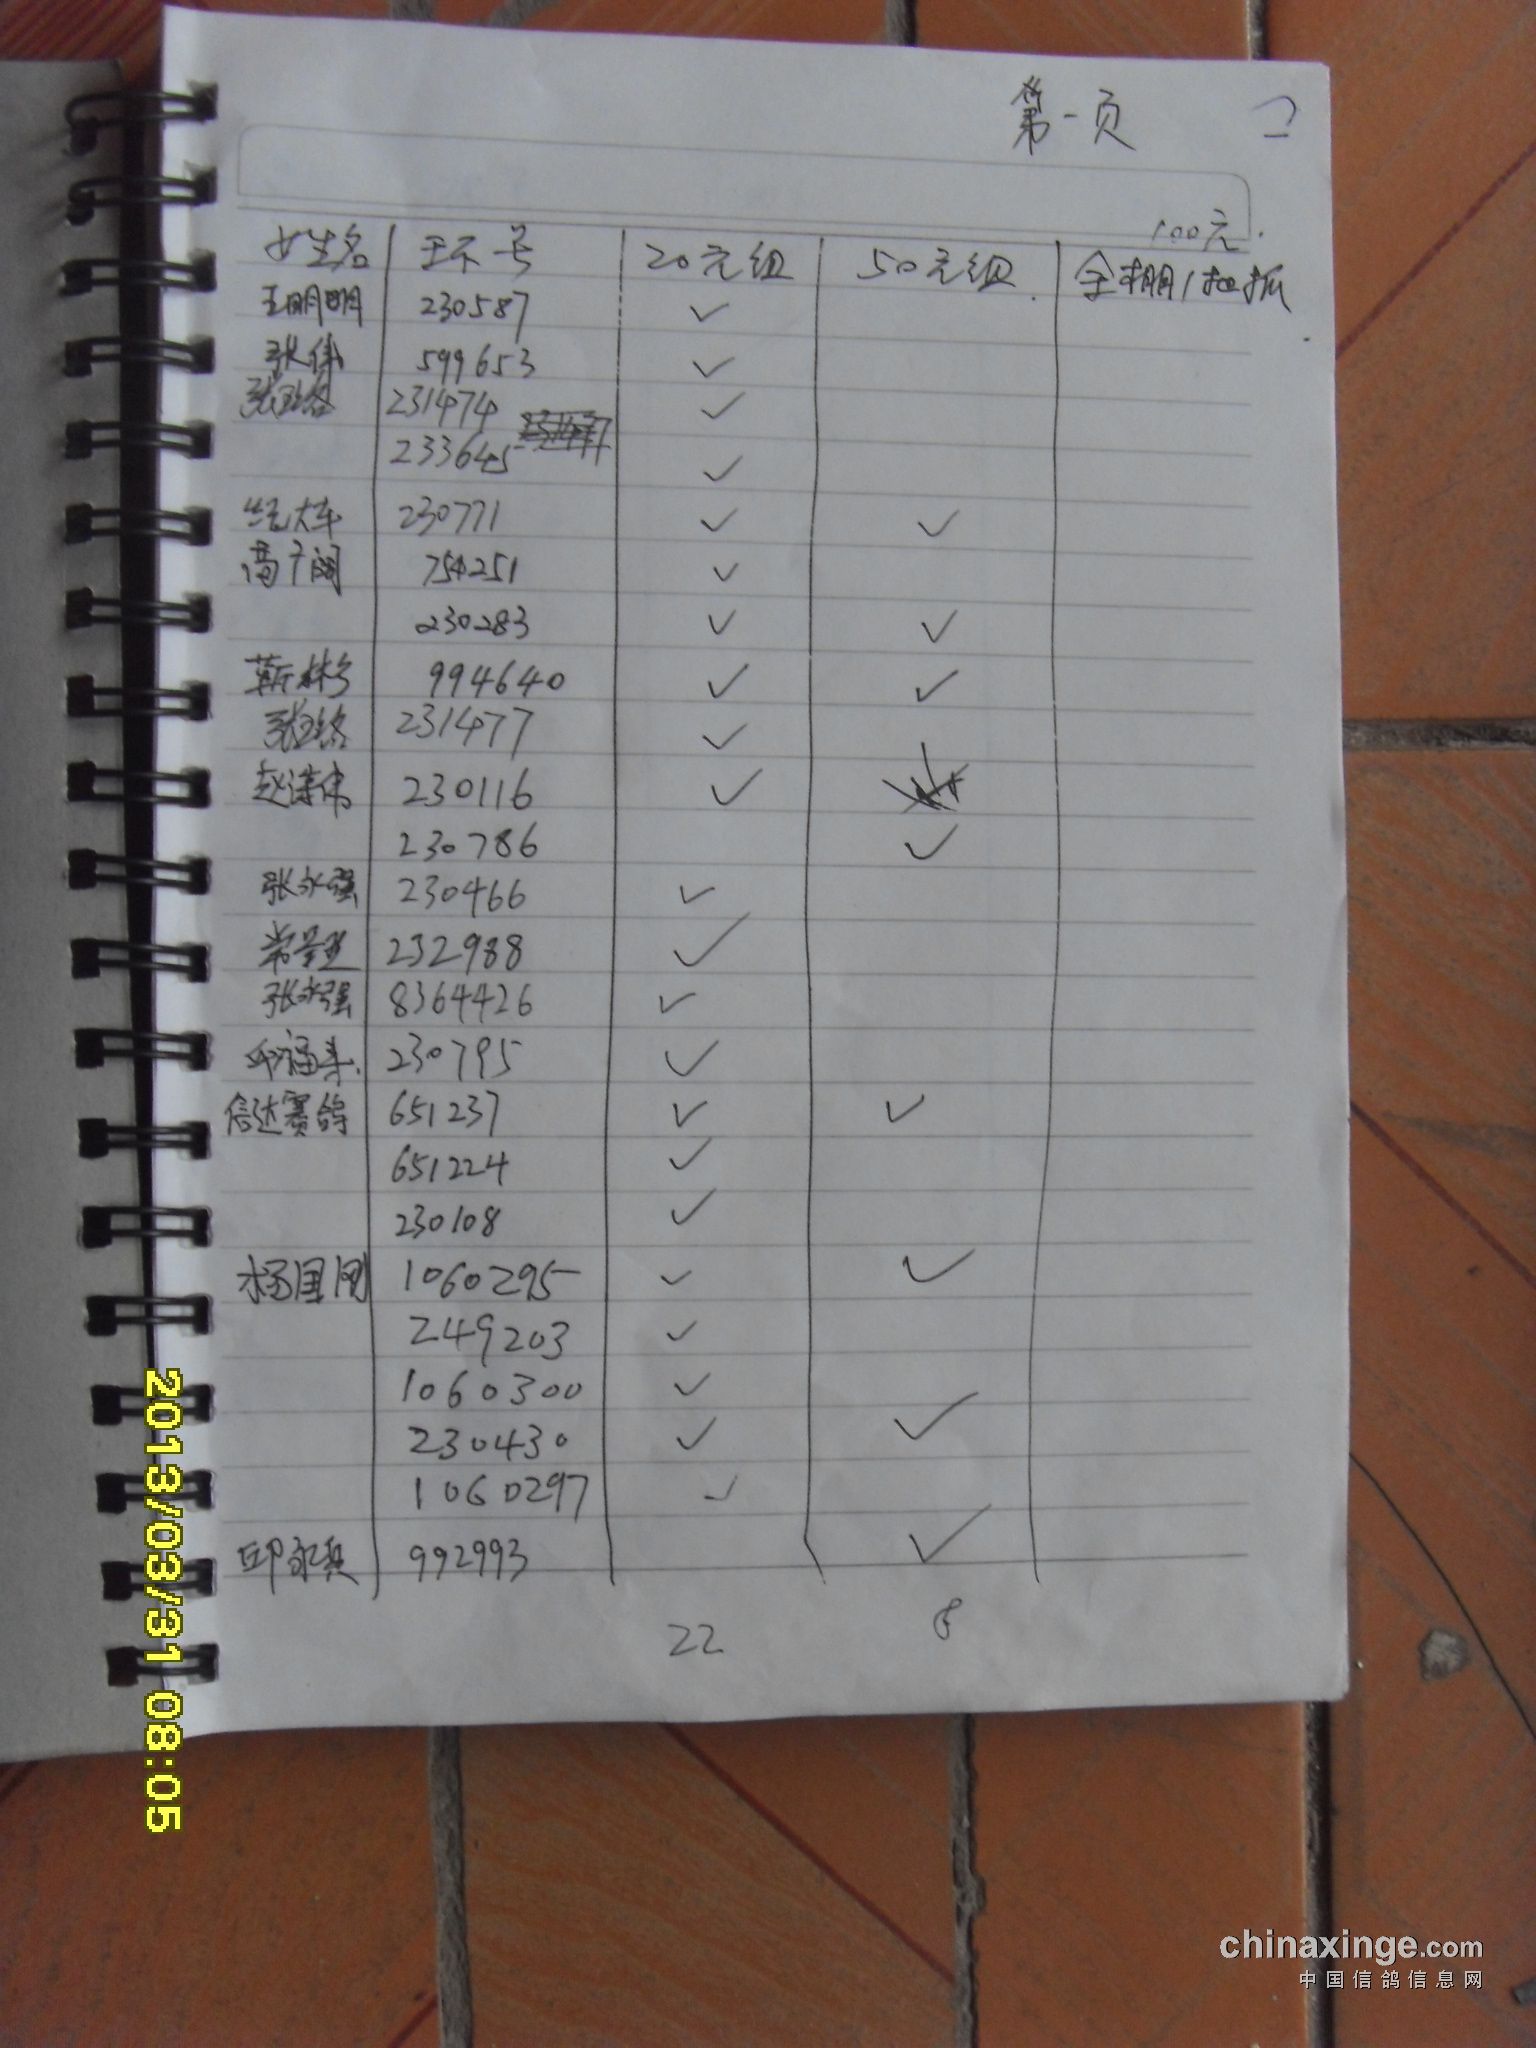 第一页
100元.
姓名 环号 20元组 50元组 全棚1把抓
王明明 230587 ✓
张伟 599653 ✓
231474 ✓
233645 ✓
大车 230771 ✓ ✓
高广阔 754251 ✓
230283 ✓ ✓
靳彬 994640 ✓ ✓
231477 ✓
赵伟 230116 ✓
230786 ✓
张永强 230466 ✓
232988 ✓
张永强 8364426 ✓
邱福来 230795 ✓
信达赛鸽 651237 ✓ ✓
651224 ✓
230108 ✓
杨国刚 1060295 ✓ ✓
249203 ✓
1060300 ✓
230430 ✓ ✓
1060297 ✓
邱永 992993 ✓
22 8
2013/03/31 08:05
chinaxinge.com
中国信鸽信息网